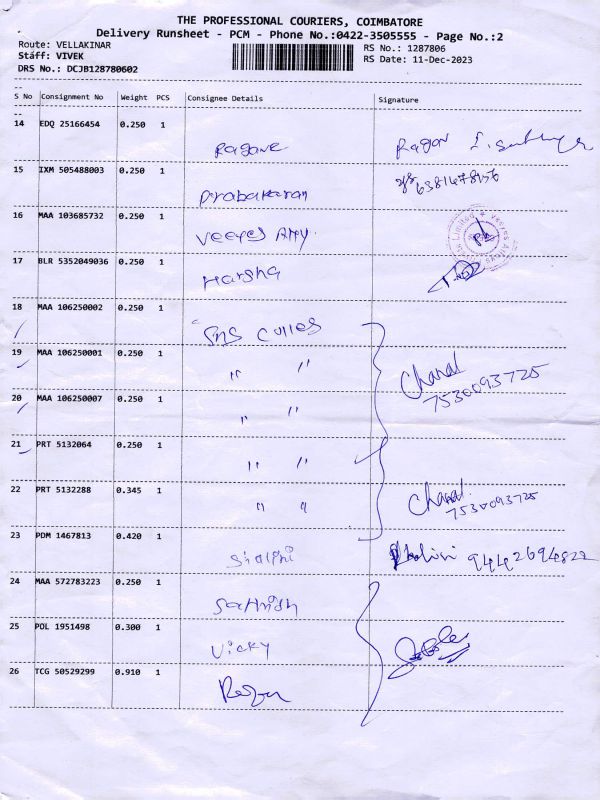 THE PROFESSIONAL COURIERS, COIMBATORE
Delivery Runsheet - PCM - Phone No.:0422-3505555 - Page No.:2
Route: VELLAKINAR RS No.: 1287806
Staff: VIVEK RS Date: 11-Dec-2023
DRS No.: DCJB128780602
--
S No Consignment No Weight PCS Consignee Details Signature
--
14 EDQ 25166454 0.250 1 Ragave Ragav
15 IXM 505488003 0.250 1 Prabakaran
16 MAA 103685732 0.250 1 Veeyes
17 BLR 5352049036 0.250 1 Harsha
18 MAA 106250002 0.250 1 SNS
19 MAA 106250001 0.250 1 " " 7530093725
20 MAA 106250007 0.250 1 " "
21 PRT 5132064 0.250 1 " "
22 PRT 5132288 0.345 1 " " 7530093725
23 PDM 1467813 0.420 1 9442694822
24 MAA 572783223 0.250 1
25 POL 1951498 0.300 1 Vicky
26 TCG 50529299 0.910 1